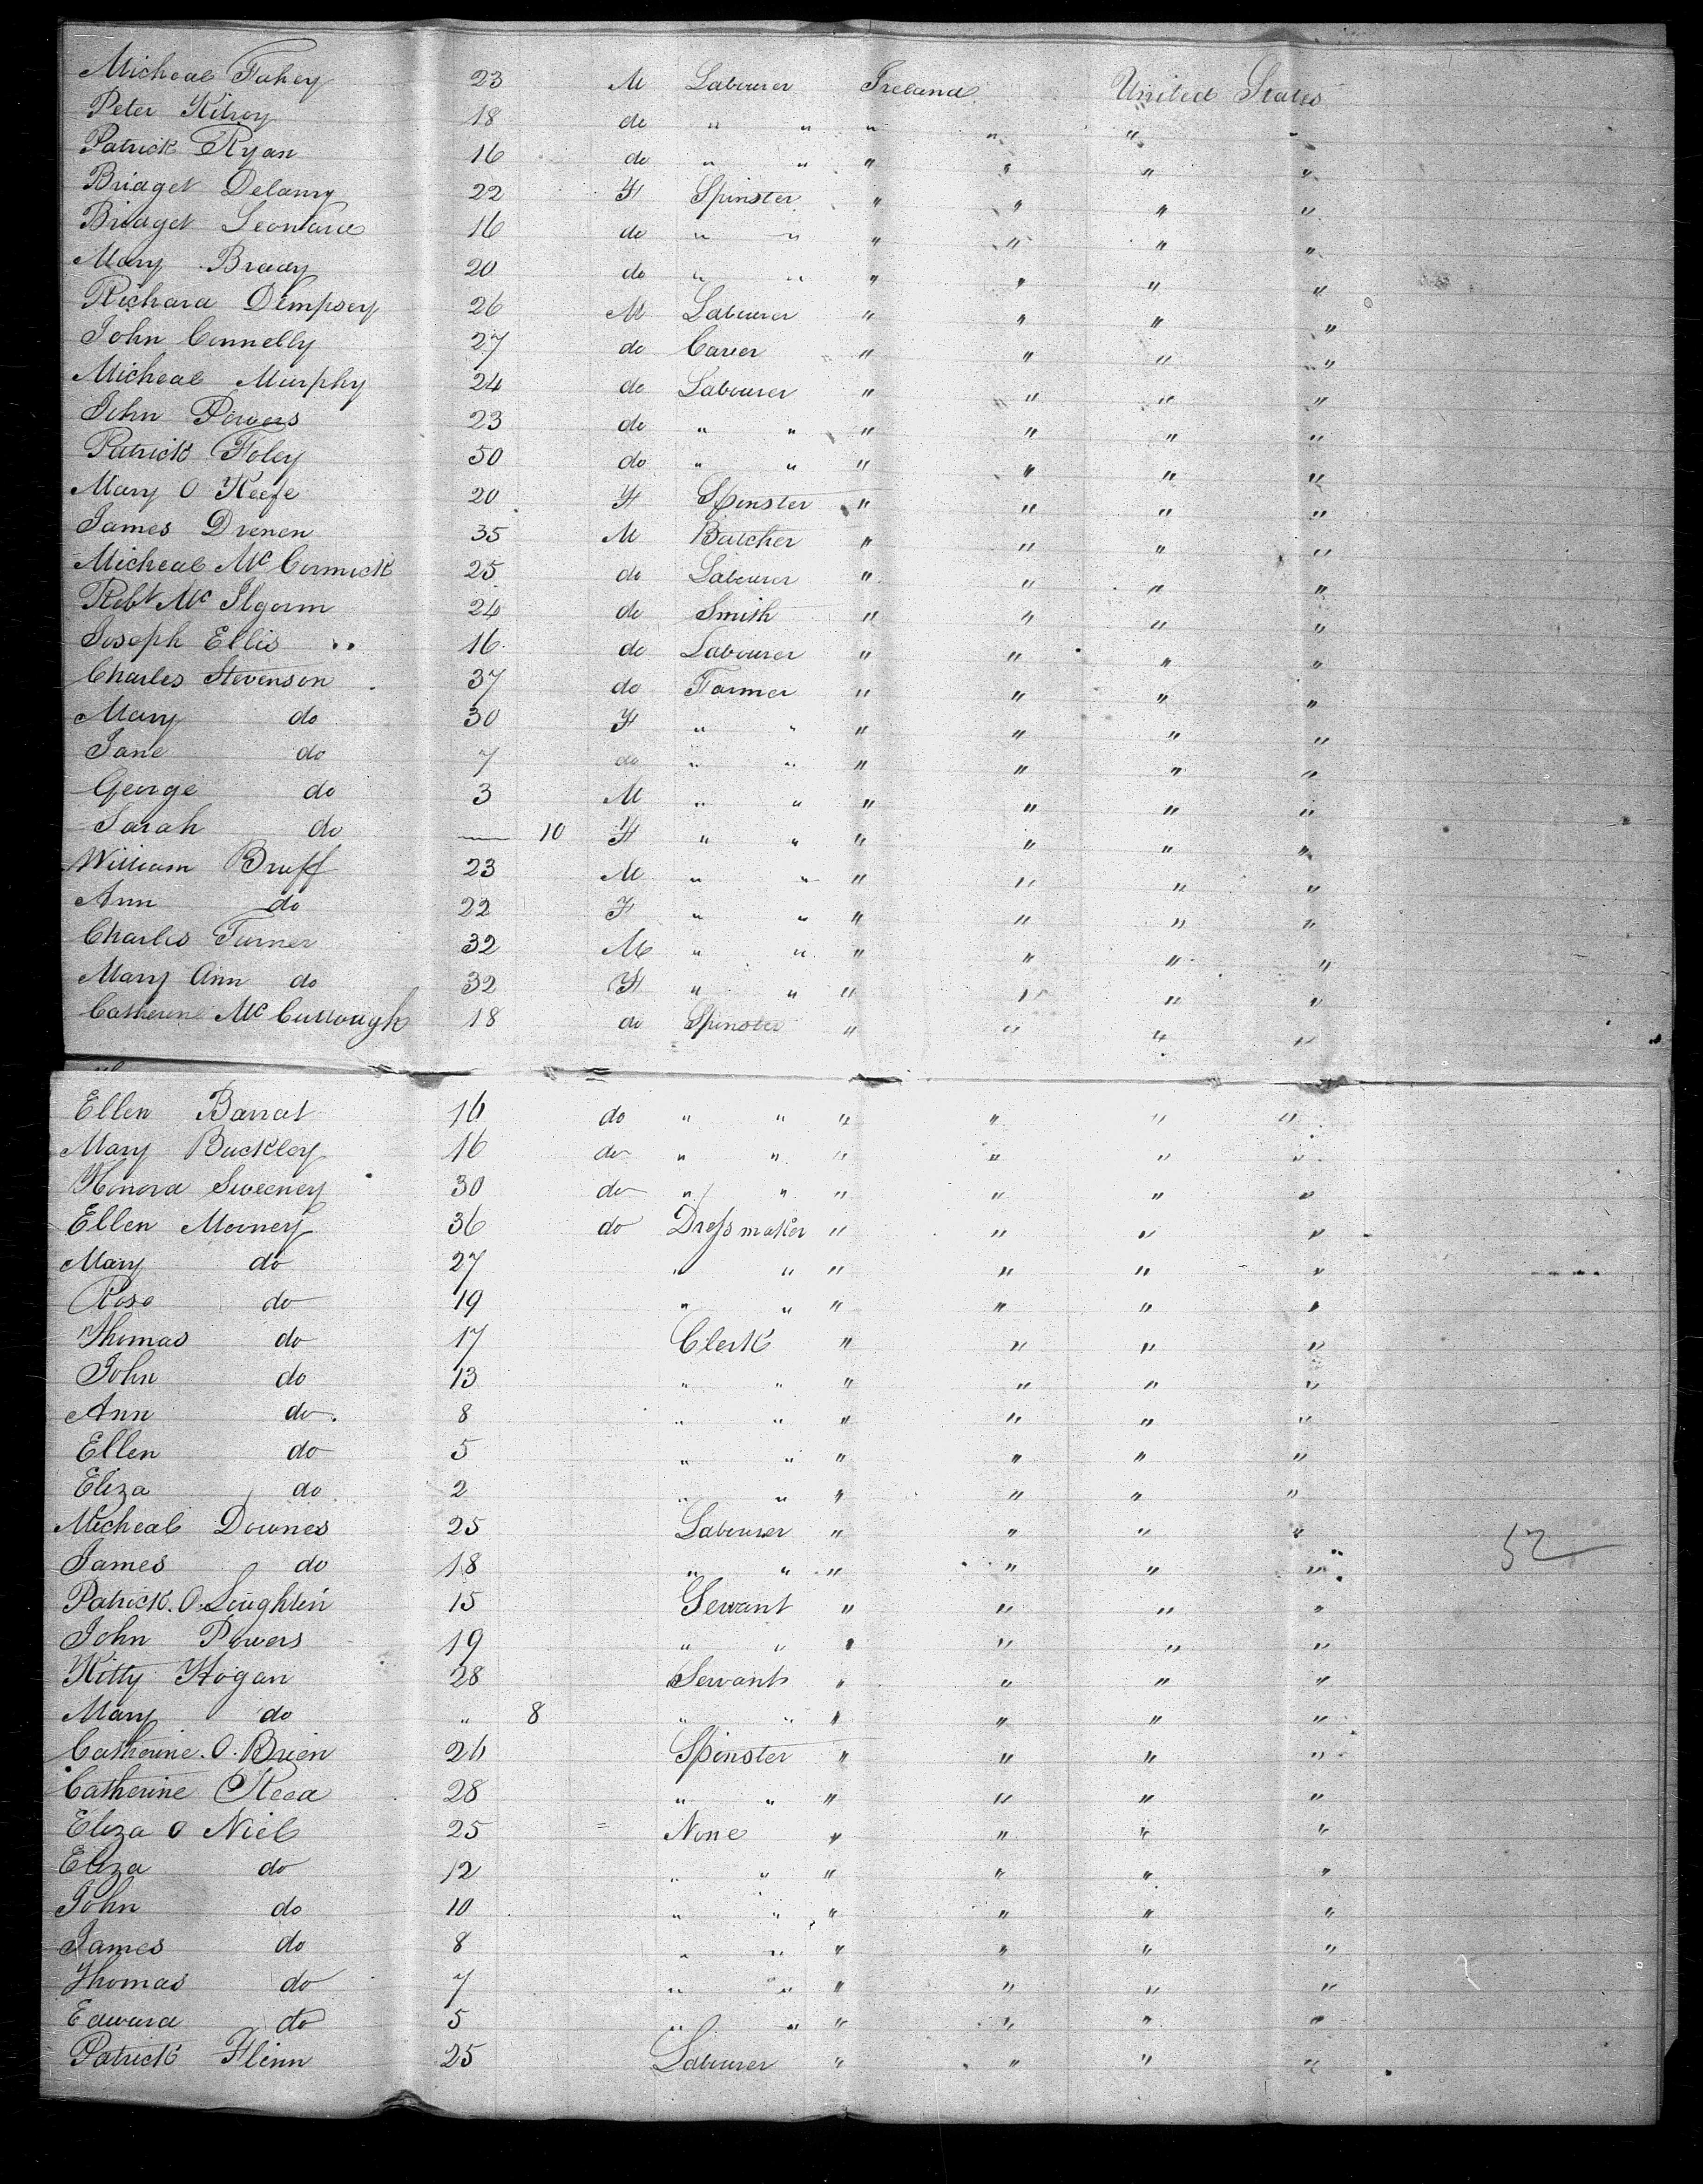 Micheal Fahey 23 M Labourer Ireland United States
Peter Kilroy 18 do " " " " " "
Patrick Ryan 16 do " " " " " "
Bridget Delany 22 F Spinster " " " "
Bridget Leonard 16 do " " " " " "
Mary Brady 20 do " " " " " "
Richard Dempsey 26 M Labourer " " " "
John Connelly 27 do Carver " " " "
Micheal Murphy 24 do Labourer " " " "
John Powers 23 do " " " " " "
Patrick Foley 50 do " " " " " "
Mary O Keefe 20 F Spinster " " " "
James Drenen 35 M Butcher " " " "
Micheal Mc Cormick 25 do Labourer " " " "
Robt Mc Ilgorm 24 do Smith " " " "
Joseph Ellis 16 do Labourer " " " "
Charles Stevenson 37 do Farmer " " " "
Mary do 30 F " " " " " "
Jane do 7 do " " " " " "
George do 3 M " " " " " "
Sarah do — 10 F " " " " " "
William Bruff 23 M " " " " " "
Ann do 22 F " " " " " "
Charles Turner 32 M " " " " " "
Mary Ann do 32 F " " " " " "
Catherine Mc Cullough 18 do Spinster " " " "
Ellen Barrat 16 do " " " " " "
Mary Buckley 16 do " " " " " "
Honora Sweeney 30 do " " " " " "
Ellen Mooney 36 do Dressmaker " " " "
Mary do 27 " " " " " "
Rose do 19 " " " " " "
Thomas do 17 Clerk " " " "
John do 13 " " " " " "
Ann do 8 " " " " " "
Ellen do 5 " " " " " "
Eliza do 2 " " " " " "
Micheal Downes 25 Labourer " " " "
James do 18 " " " " " " 52
Patrick O Loughlin 15 Servant " " " "
John Powers 19 " " " " " "
Kitty Hogan 28 Servant " " " "
Mary do " 8 " " " " " "
Catherine O Brien 26 Spinster " " " "
Catherine Reed 28 " " " " " "
Eliza O Niel 25 None " " " "
Eliza do 12 " " " " " "
John do 10 " " " " " "
James do 8 " " " " " "
Thomas do 7 " " " " " "
Edward do 5 " " " " " "
Patrick Flinn 25 Labourer " " " "